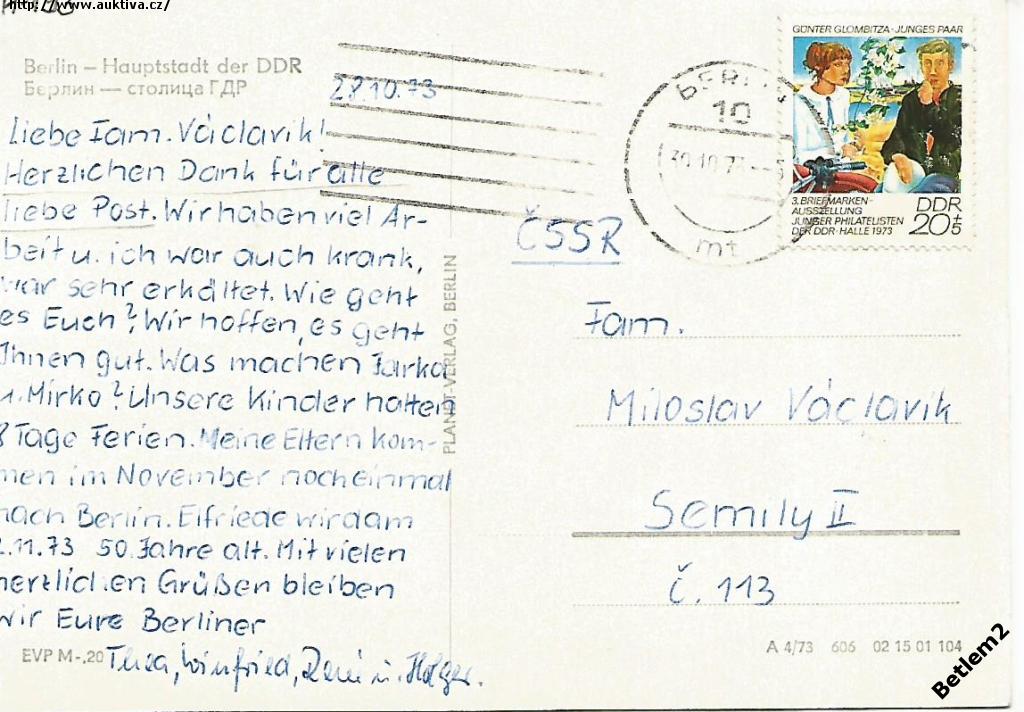 http://www.auktiva.cz/
Berlin – Hauptstadt der DDR
Берлин — столица ГДР
28.10.73
Liebe Fam. Václavik!
Herzlichen Dank für alle
liebe Post. Wir haben viel Ar-
beit u. ich war auch krank,
war sehr erkältet. Wie geht
es Euch? Wir hoffen, es geht
Ihnen gut. Was machen Jarka
u. Mirko? Unsere Kinder hatten
8 Tage Ferien. Meine Eltern kom-
men im November noch einmal
nach Berlin. Elfriede wird am
2.11.73 50 Jahre alt. Mit vielen
herzlichen Grüßen bleiben
wir Eure Berliner
Thea, Winfried, René u. Holger.
EVP M -,20
PLANET-VERLAG, BERLIN
BERLIN
10
30.10.73
mt
GÜNTER GLOMBITZA · JUNGES PAAR
3. BRIEFMARKEN-
AUSSTELLUNG
JUNGER PHILATELISTEN
DER DDR · HALLE 1973
DDR
20+5
ČSSR
Fam.
Miloslav Václavik
Semily II
č. 113
A 4/73 606 02 15 01 104
Betlem2